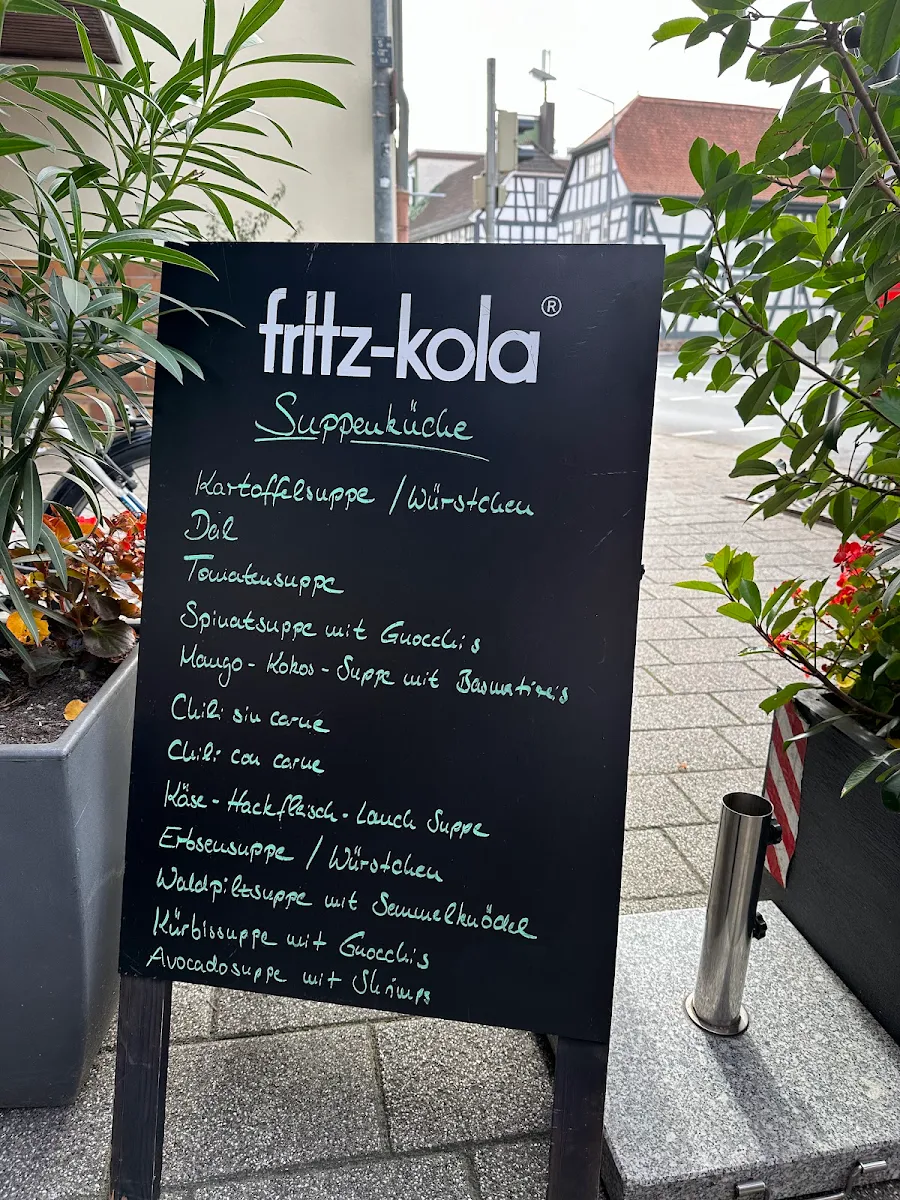 fritz-kola®
Suppenküche
Kartoffelsuppe / Würstchen
Dal
Tomatensuppe
Spinatsuppe mit Gnocchis
Mango-Kokos-Suppe mit Basmatireis
Chili sin carne
Chili con carne
Käse-Hackfleisch-Lauch Suppe
Erbsensuppe / Würstchen
Waldpilzsuppe mit Semmelknödel
Kürbissuppe mit Gnocchis
Avocadosuppe mit Shrimps